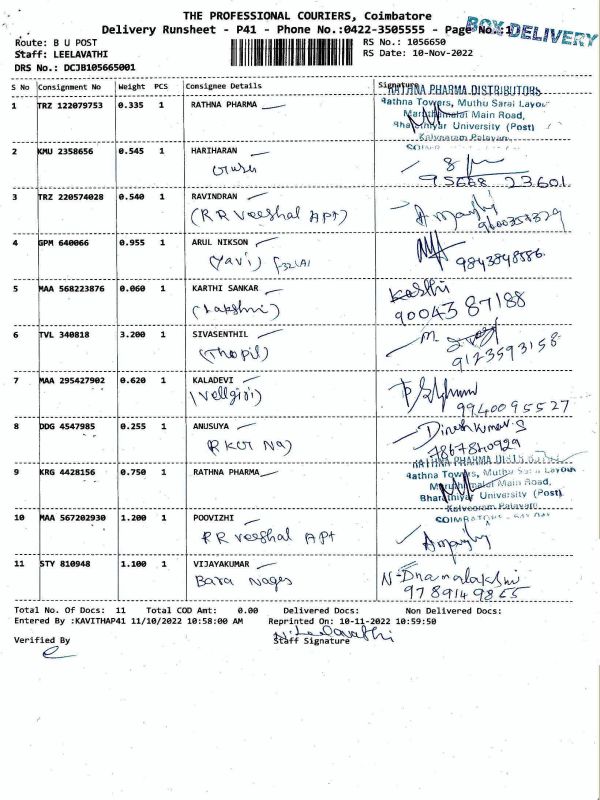 THE PROFESSIONAL COURIERS, Coimbatore
Delivery Runsheet - P41 - Phone No.:0422-3505555 - Page No.:1
BOX DELIVERY
Route: B U POST
RS No.: 1056650
Staff: LEELAVATHI
RS Date: 10-Nov-2022
DRS No.: DCJB105665001
S No Consignment No Weight PCS Consignee Details Signature
1 TRZ 122079753 0.335 1 RATHNA PHARMA
RATHNA PHARMA DISTRIBUTORS
Rathna Towers, Muthu Sarai Layout
Maruthamalai Main Road,
Bharathiyar University (Post)
Kalveeram Palayam
2 KMU 2358656 0.545 1 HARIHARAN
95668 23601
3 TRZ 220574028 0.540 1 RAVINDRAN
(RR Veeshal Apt)
4 GPM 640066 0.955 1 ARUL NIKSON
(Yavi) F32(A)
9843848886
5 MAA 568223876 0.060 1 KARTHI SANKAR
(Lakshmi)
Kasthi
90043 87188
6 TVL 340818 3.200 1 SIVASENTHIL
(Thopil)
9123593158
7 MAA 295427902 0.620 1 KALADEVI
(Vellgiri)
9940095527
8 DDG 4547985 0.255 1 ANUSUYA
Dineshkumar.S
7867840929
9 KRG 4428156 0.750 1 RATHNA PHARMA
RATHNA PHARMA DISTRIBUTORS
Rathna Towers, Muthu Sarai Layout
Maruthamalai Main Road,
Bharathiyar University (Post)
Kalveeram Palayam
10 MAA 567202930 1.200 1 POOVIZHI
RR veeshal APt
11 STY 810948 1.100 1 VIJAYAKUMAR
Bara Nages
N-Dhanalakshmi
9789149855
Total No. Of Docs: 11 Total COD Amt: 0.00 Delivered Docs: Non Delivered Docs:
Entered By :KAVITHAP41 11/10/2022 10:58:00 AM Reprinted On: 10-11-2022 10:59:50
Verified By
Staff Signature